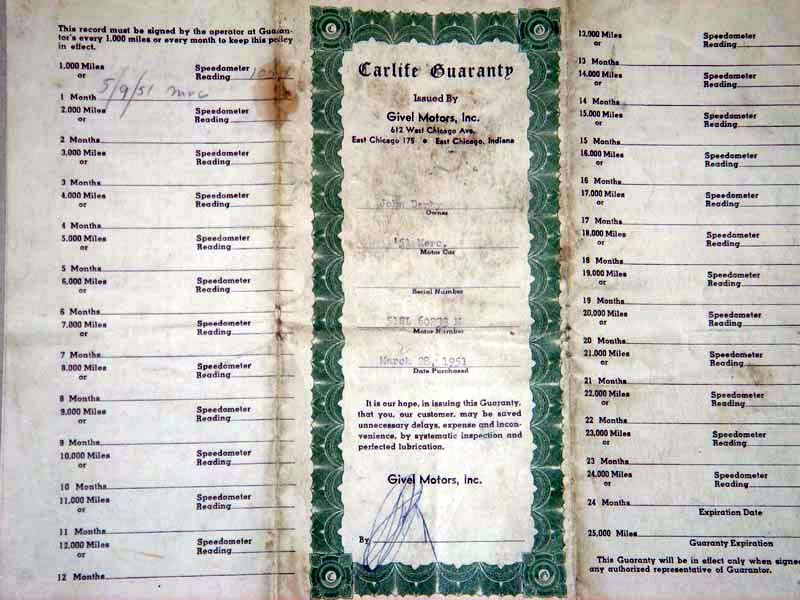 This record must be signed by the operator at Guaran-
tor's every 1,000 miles or every month to keep this policy
in effect.
1,000 Miles Speedometer
or Reading
1 Month 5/9/51
2,000 Miles Speedometer
or Reading
2 Months
3,000 Miles Speedometer
or Reading
3 Months
4,000 Miles Speedometer
or Reading
4 Months
5,000 Miles Speedometer
or Reading
5 Months
6,000 Miles Speedometer
or Reading
6 Months
7,000 Miles Speedometer
or Reading
7 Months
8,000 Miles Speedometer
or Reading
8 Months
9,000 Miles Speedometer
or Reading
9 Months
10,000 Miles Speedometer
or Reading
10 Months
11,000 Miles Speedometer
or Reading
11 Months
12,000 Miles Speedometer
or Reading
12 Months
Carlife Guaranty
Issued By
Givel Motors, Inc.
612 West Chicago Ave.
East Chicago 175 • East Chicago, Indiana
John
Owner
'51 Merc.
Motor Car
Serial Number
Motor Number
March 28, 1951
Date Purchased
It is our hope, in issuing this Guaranty,
that you, our customer, may be saved
unnecessary delays, expense and incon-
venience, by systematic inspection and
perfected lubrication.
Givel Motors, Inc.
By
13,000 Miles Speedometer
or Reading
13 Months
14,000 Miles Speedometer
or Reading
14 Months
15,000 Miles Speedometer
or Reading
15 Months
16,000 Miles Speedometer
or Reading
16 Months
17,000 Miles Speedometer
or Reading
17 Months
18,000 Miles Speedometer
or Reading
18 Months
19,000 Miles Speedometer
or Reading
19 Months
20,000 Miles Speedometer
or Reading
20 Months
21,000 Miles Speedometer
or Reading
21 Months
22,000 Miles Speedometer
or Reading
22 Months
23,000 Miles Speedometer
or Reading
23 Months
24,000 Miles Speedometer
or Reading
24 Months
Expiration Date
25,000 Miles
Guaranty Expiration
This Guaranty will be in effect only when signed
any authorized representative of Guarantor.